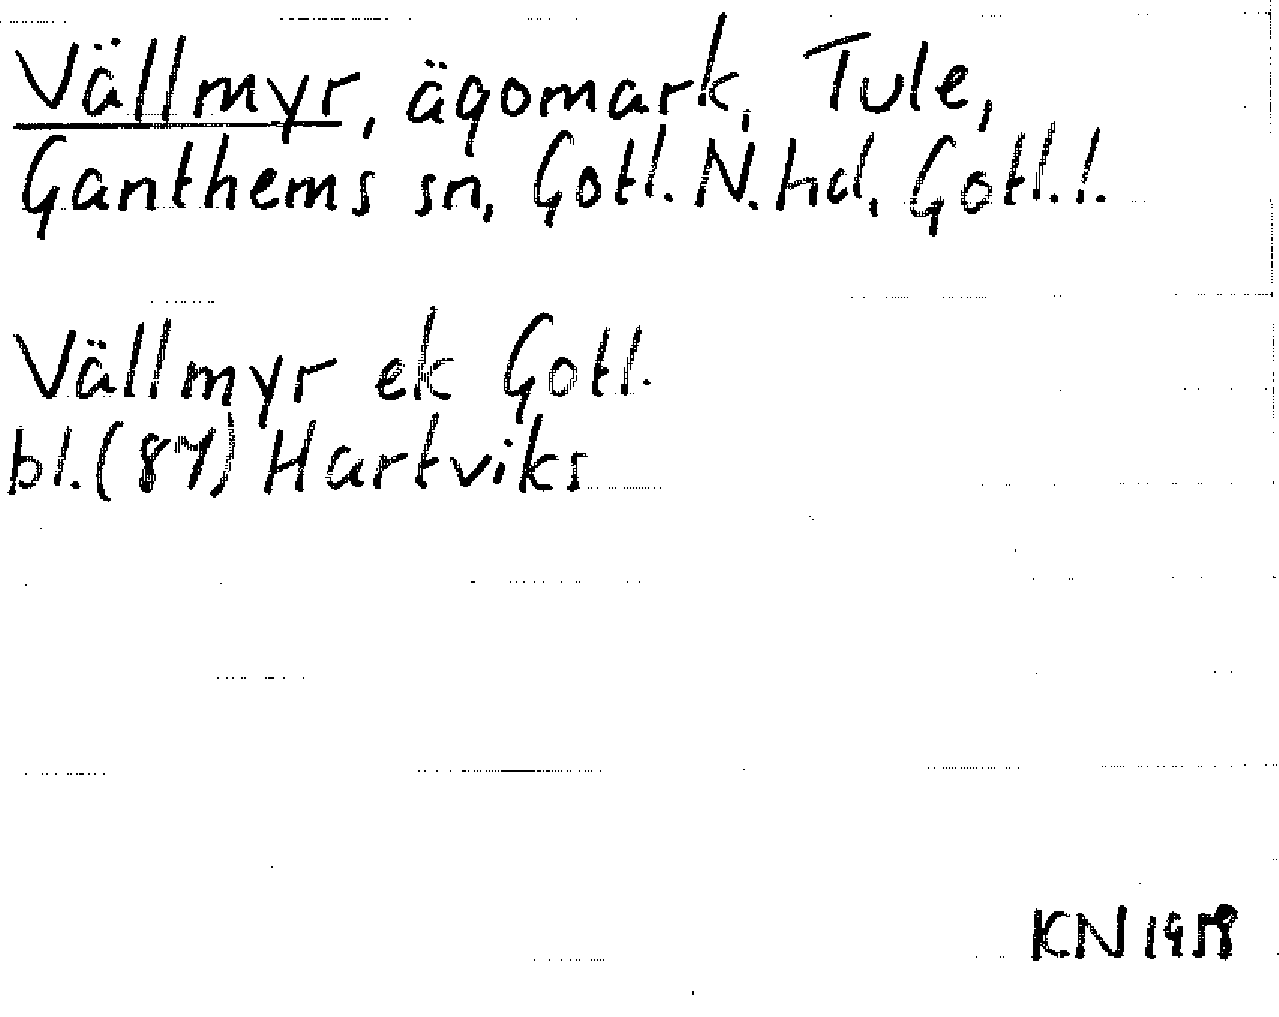 Vällmyr, ägomark, Tule,
Ganthems sn, Gotl. N. hd, Gotl. l.
Vällmyr ek Gotl.
bl. (87) Hartviks
KN 1958